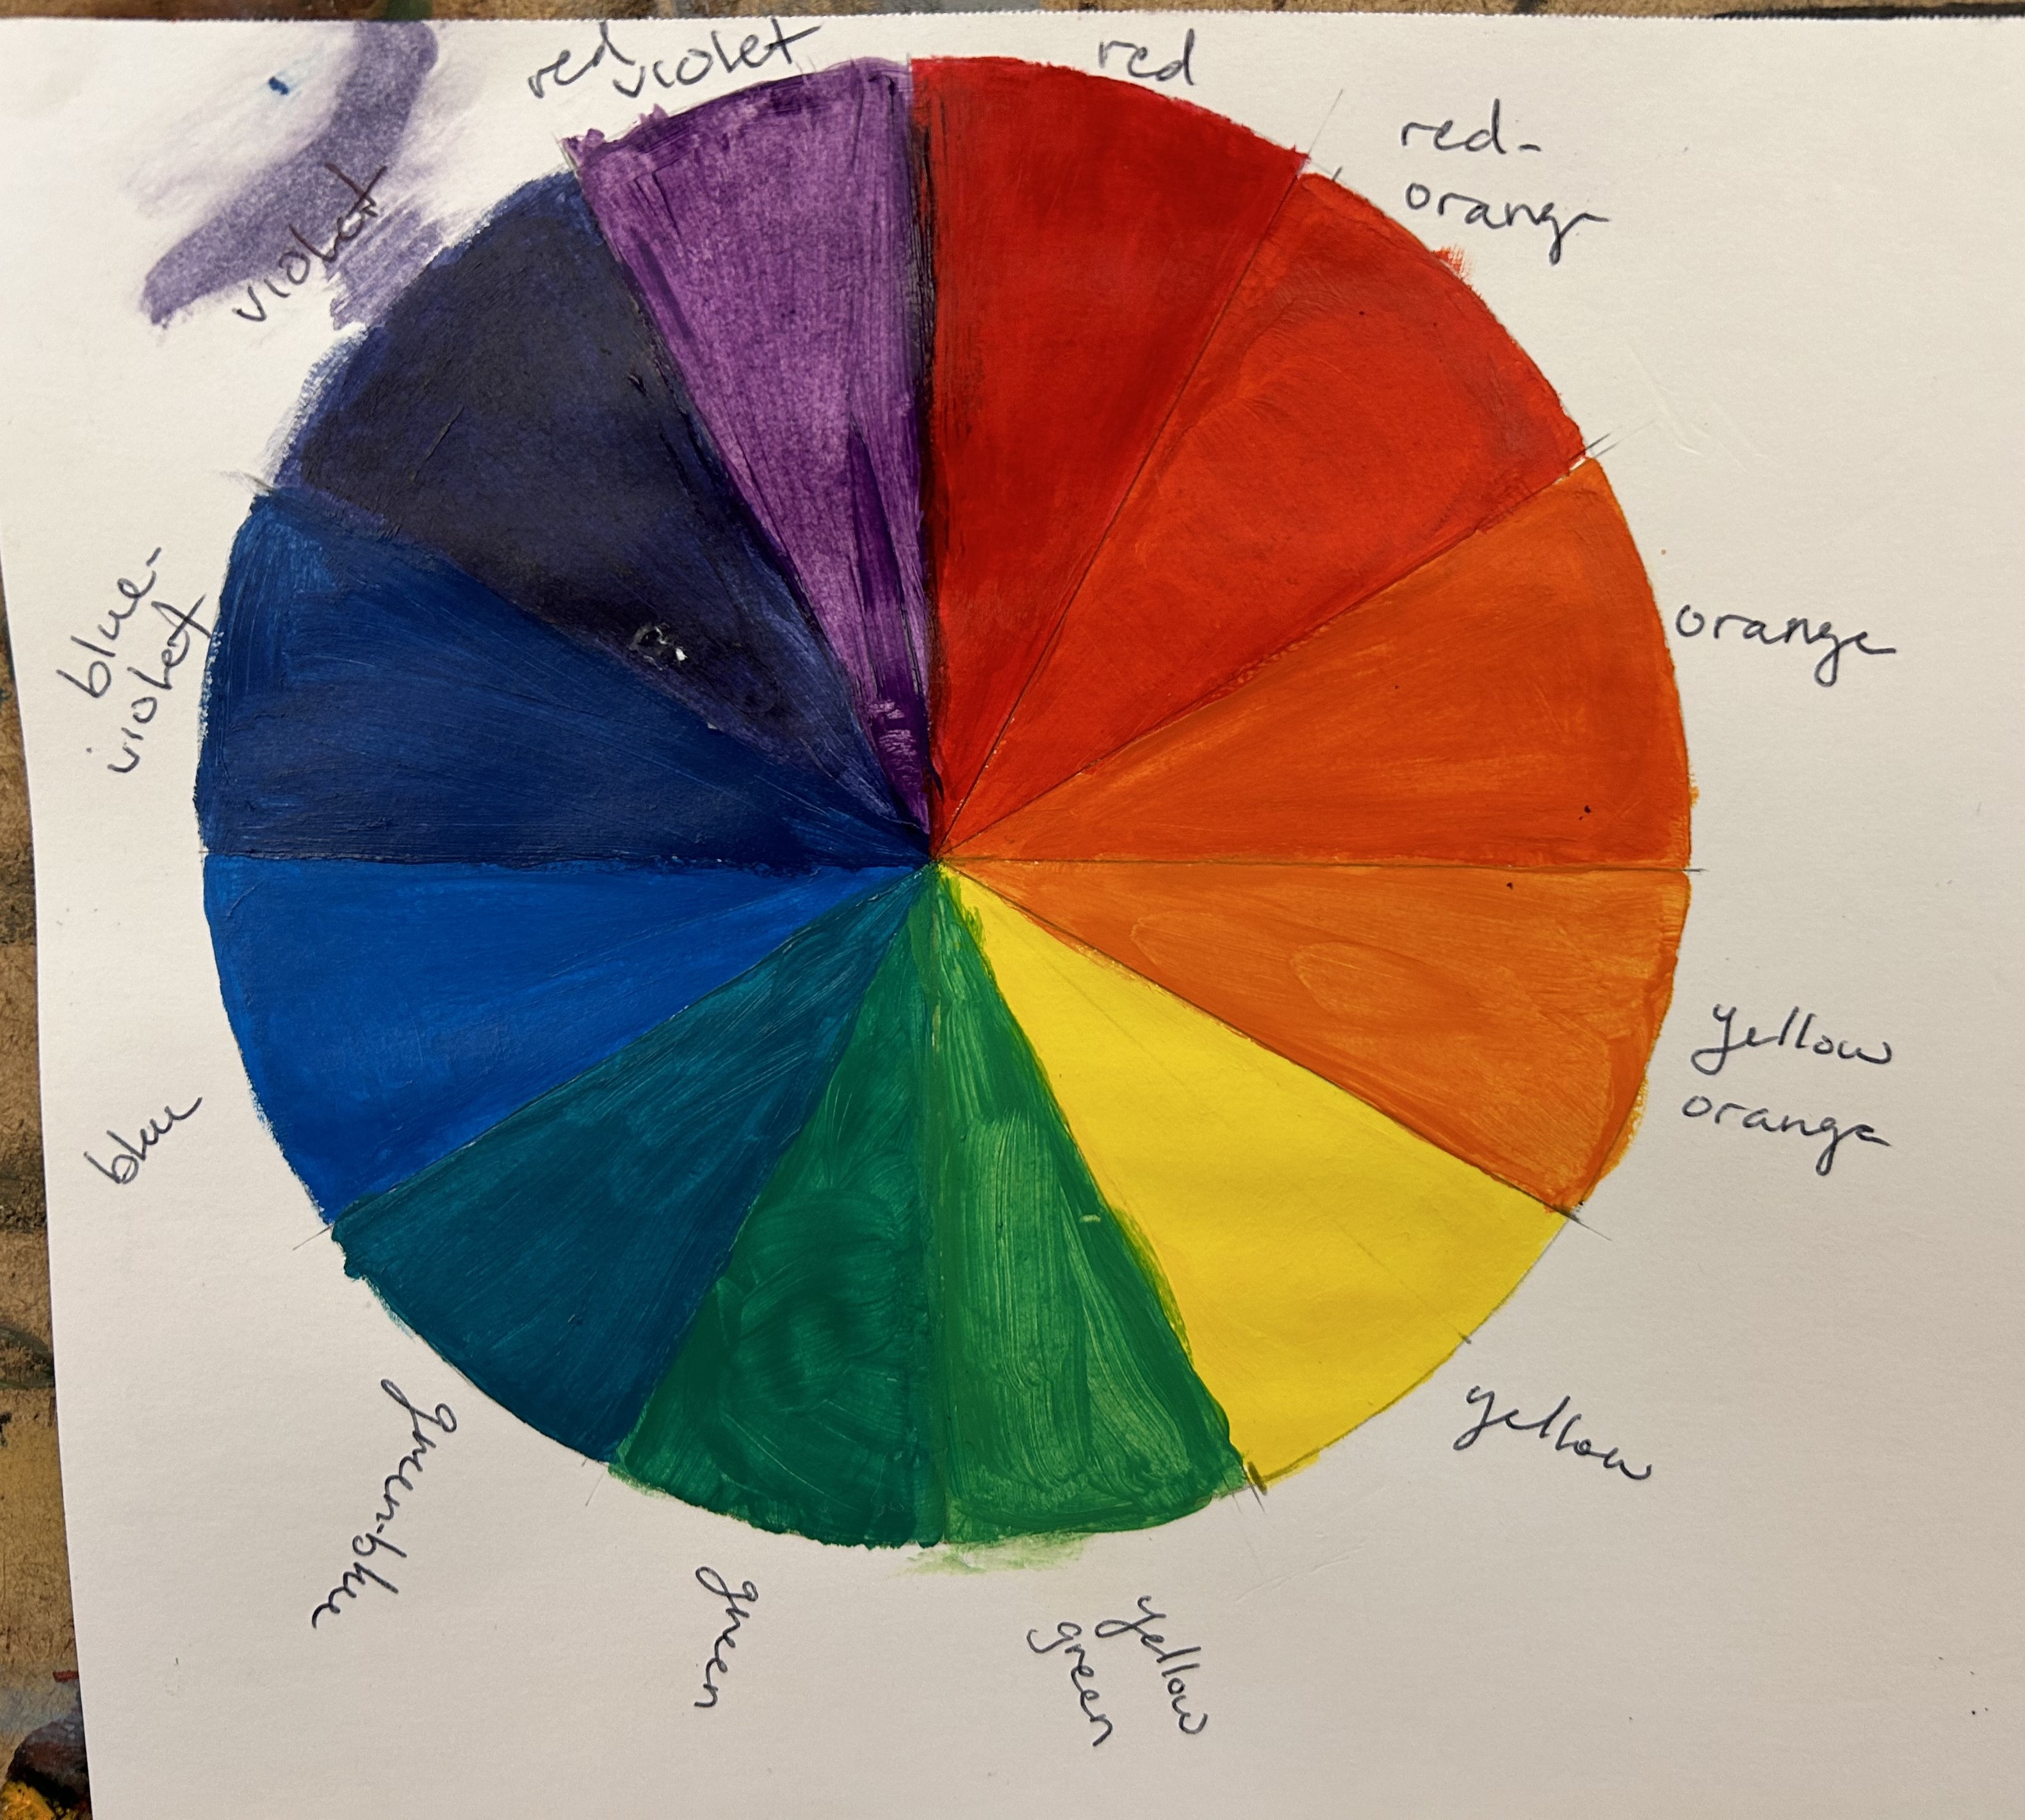 red violet
red
red-
orange
orange
yellow
orange
yellow
yellow
green
green
green-blue
blue
blue-
violet
violet